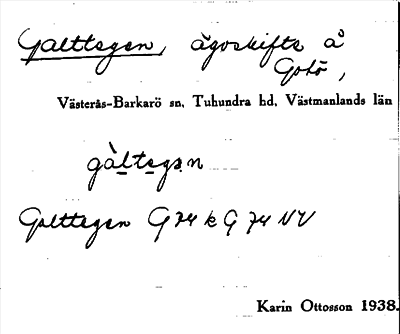 Galttegen, ägoskifte å
Gotö,
Västerås-Barkarö sn, Tuhundra hd, Västmanlands län
gàltegan
Galttegen G 74 k G 74 NV
Karin Ottosson 1938.